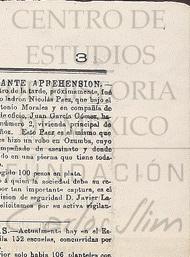 CENTRO DE
ESTUDIOS
3
ANTE APREHENSION.—
ro de la tarde, próximamente, fué
so ladrón Nicolás Paez, que bajó el
Antonio Morales y en compañía de
de oficio, Juan García Gómez, ha-
número 2, vivienda principal de
años. Este Paez es el mismo que
es hizo un robo en Orzumba, cuyo
mpañado de asesinato y donde
do en una pierna que tiene toda-
cogido 100 pesos en plata.
á quien la sociedad debe su re-
por tan importante captura, es el
visión de seguridad D. Javier La-
licitamos por su activa vigilan-
S.—Actualmente hay en el Es-
la 152 escuelas, concurridas por
rior solo había 106 planteles con